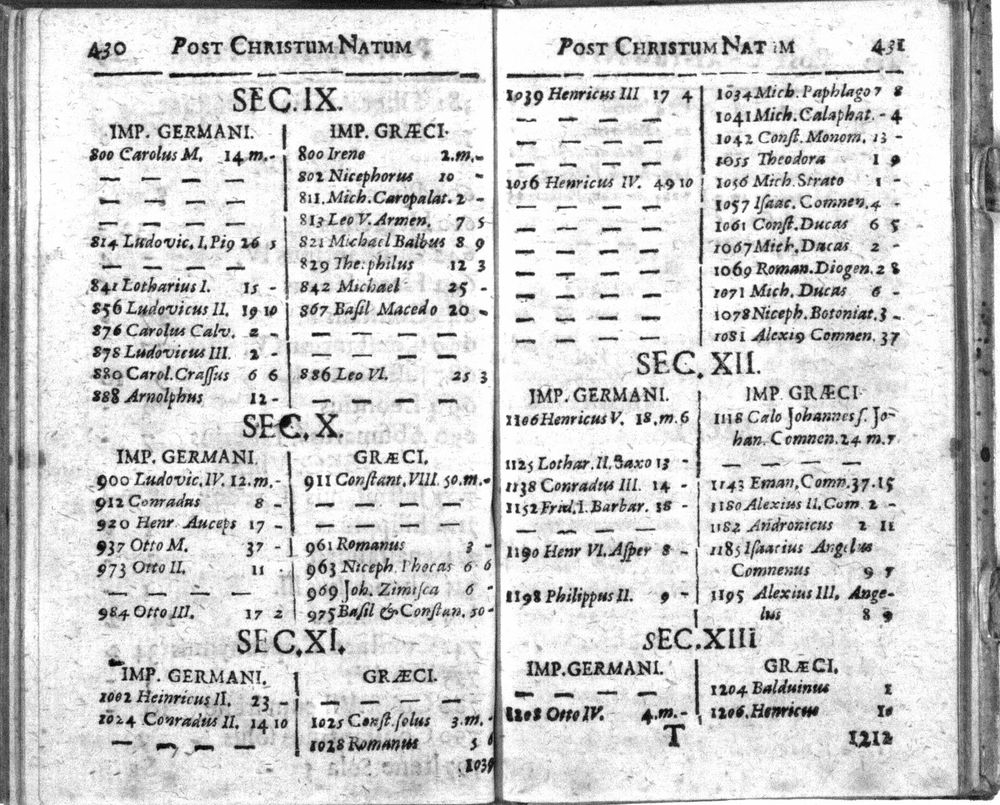 430 POST CHRISTUM NATUM
SEC. IX.
IMP. GERMANI. IMP. GRÆCI.
800 Carolus M. 14 m. - 800 Irene 2. m. -
— — — — 802 Nicephorus 10 -
— — — — 811. Mich. Caropalat. 2 -
— — — — 813 Leo V. Armen. 7 5
814 Ludovic. I. Pi9 26 5 821 Michael Balbus 8 9
— — — — 829 Theophilus 12 3
841 Lotharius I. 15 - 842 Michael 25 -
856 Ludovicus II. 19 10 867 Basil Macedo 20 -
876 Carolus Calv. 2 - — — — —
878 Ludovicus III. 2 - — — — —
880 Carol. Crassus 6 6 886 Leo VI. 25 3
888 Arnolphus 12 - — — — —
SEC. X.
IMP. GERMANI. GRÆCI.
900 Ludovic. IV. 12. m. - 911 Constant. VIII. 50. m. -
912 Conradus 8 - — — — —
920 Henr Auceps 17 - — — — —
937 Otto M. 37 - 961 Romanus 3 -
973 Otto II. 11 963 Niceph. Phocas 6 6
— — — — 969 Joh. Zimisca 6 -
984 Otto III. 17 2 975 Basil & Constan. 50 -
SEC. XI.
IMP. GERMANI. GRÆCI.
1002 Heinricus II. 23 - — — — —
1024 Conradus II. 14 10 1025 Const. solus 3. m. -
— — — — 1028 Romanus 5 6
1039
POST CHRISTUM NATUM 431
1039 Henricus III 17 4 1034 Mich. Paphlago 7 8
— — — — 1041 Mich. Calaphat. - 4
— — — — 1042 Const. Monom. 13 -
— — — — 1055 Theodora 1 9
1056 Henricus IV. 49 10 1056 Mich. Strato 1 -
— — — — 1057 Isaac. Comnen. 4 -
— — — — 1061 Const. Ducas 6 5
— — — — 1067 Mich. Ducas 2 -
— — — — 1069 Roman. Diogen. 2 8
— — — — 1071 Mich. Ducas 6 -
— — — — 1078 Niceph. Botoniat. 3 -
— — — — 1081 Alexi9 Comnen. 37
SEC. XII.
IMP. GERMANI. IMP GRÆCI
1106 Henricus V. 18. m. 6 1118 Calo Johannes s. Jo-
han. Comnen. 24 m. 7
1125 Lothar. II. Saxo 13 - — — — —
1138 Conradus III. 14 - 1143 Eman. Comn. 37. 15
1152 Frid. I. Barbar. 38 - 1180 Alexius II. Com 2 -
— — — — 1182 Andronicus 2 11
1190 Henr VI. Asper 8 - 1185 Isaacius Angelus
Comnenus 9 7
1198 Philippus II. 9 - 1195 Alexius III. Ange-
lus 8 9
SEC. XIII
IMP. GERMANI. GRÆCI.
— — — — 1204 Balduinus 1
1208 Otto IV. 4. m. - 1206. Henricus 10
T 1212